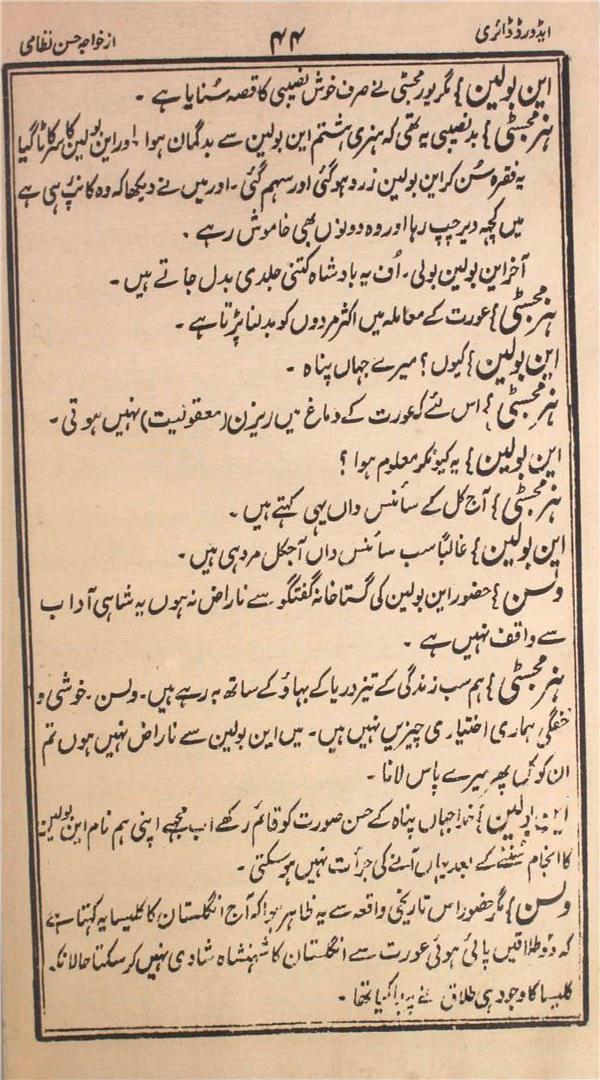 ایڈورڈ ڈائری
۴۴
از خواجہ حسن نظامی
این بولین} مگر یور مجسٹی نے صرف خوش نصیبی کا قصہ سُنایا ہے ۔
ہز مجسٹی} بدنصیبی یہ تھی کہ ہنری ہشتم این بولین سے بدگمان ہوا اور این بولین کا سر کاٹا گیا
یہ فقرہ سُن کر این بولین زرد ہو گئی اور سہم گئی ۔ اور میں نے دیکھا کہ وہ کانپ رہی ہے
میں کچھ دیر چپ رہا اور وہ دونوں بھی خاموش رہے ۔
آخر این بولین بولی ۔ اُف یہ بادشاہ کتنی جلدی بدل جاتے ہیں ۔
ہز مجسٹی} عورت کے معاملہ میں اکثر مردوں کو بدلنا پڑتا ہے ۔
این بولین} کیوں؟ میرے جہاں پناہ ۔
ہز مجسٹی} اس لئے کہ عورت کے دماغ میں ریزن (معقولیت) نہیں ہوتی ۔
این بولین} یہ کیونکر معلوم ہوا؟
ہز مجسٹی} آج کل کے سائنس داں یہی کہتے ہیں ۔
این بولین} غالباً سب سائنس داں آجکل مرد ہی ہیں ۔
ولسن} حضور این بولین کی گستاخانہ گفتگو سے ناراض نہ ہوں یہ شاہی آداب
سے واقف نہیں ہے ۔
ہز مجسٹی} ہم سب زندگی کے تیز دریا کے بہاؤ کے ساتھ بہ رہے ہیں ۔ ولسن ۔ خوشی و
خفگی ہماری اختیاری چیزیں نہیں ہیں ۔ میں این بولین سے ناراض نہیں ہوں تم
ان کو پھر میرے پاس لانا ۔
این بولین} خدا جہاں پناہ کے حسن صورت کو قائم رکھے اب مجھے اپنی ہم نام این بولین
کا انجام سُننے کے بعد یہاں آنے کی جرأت نہیں ہو سکتی ۔
ولسن} مگر حضور اس تاریخی واقعہ سے یہ ظاہر ہوا کہ آج انگلستان کا کلیسا یہ کہتا ہے
کہ دو طلاقیں پائی ہوئی عورت سے انگلستان کا شہنشاہ شادی نہیں کر سکتا حالانکہ
کلیسا کا وجود ہی طلاق نے پیدا کیا تھا ۔